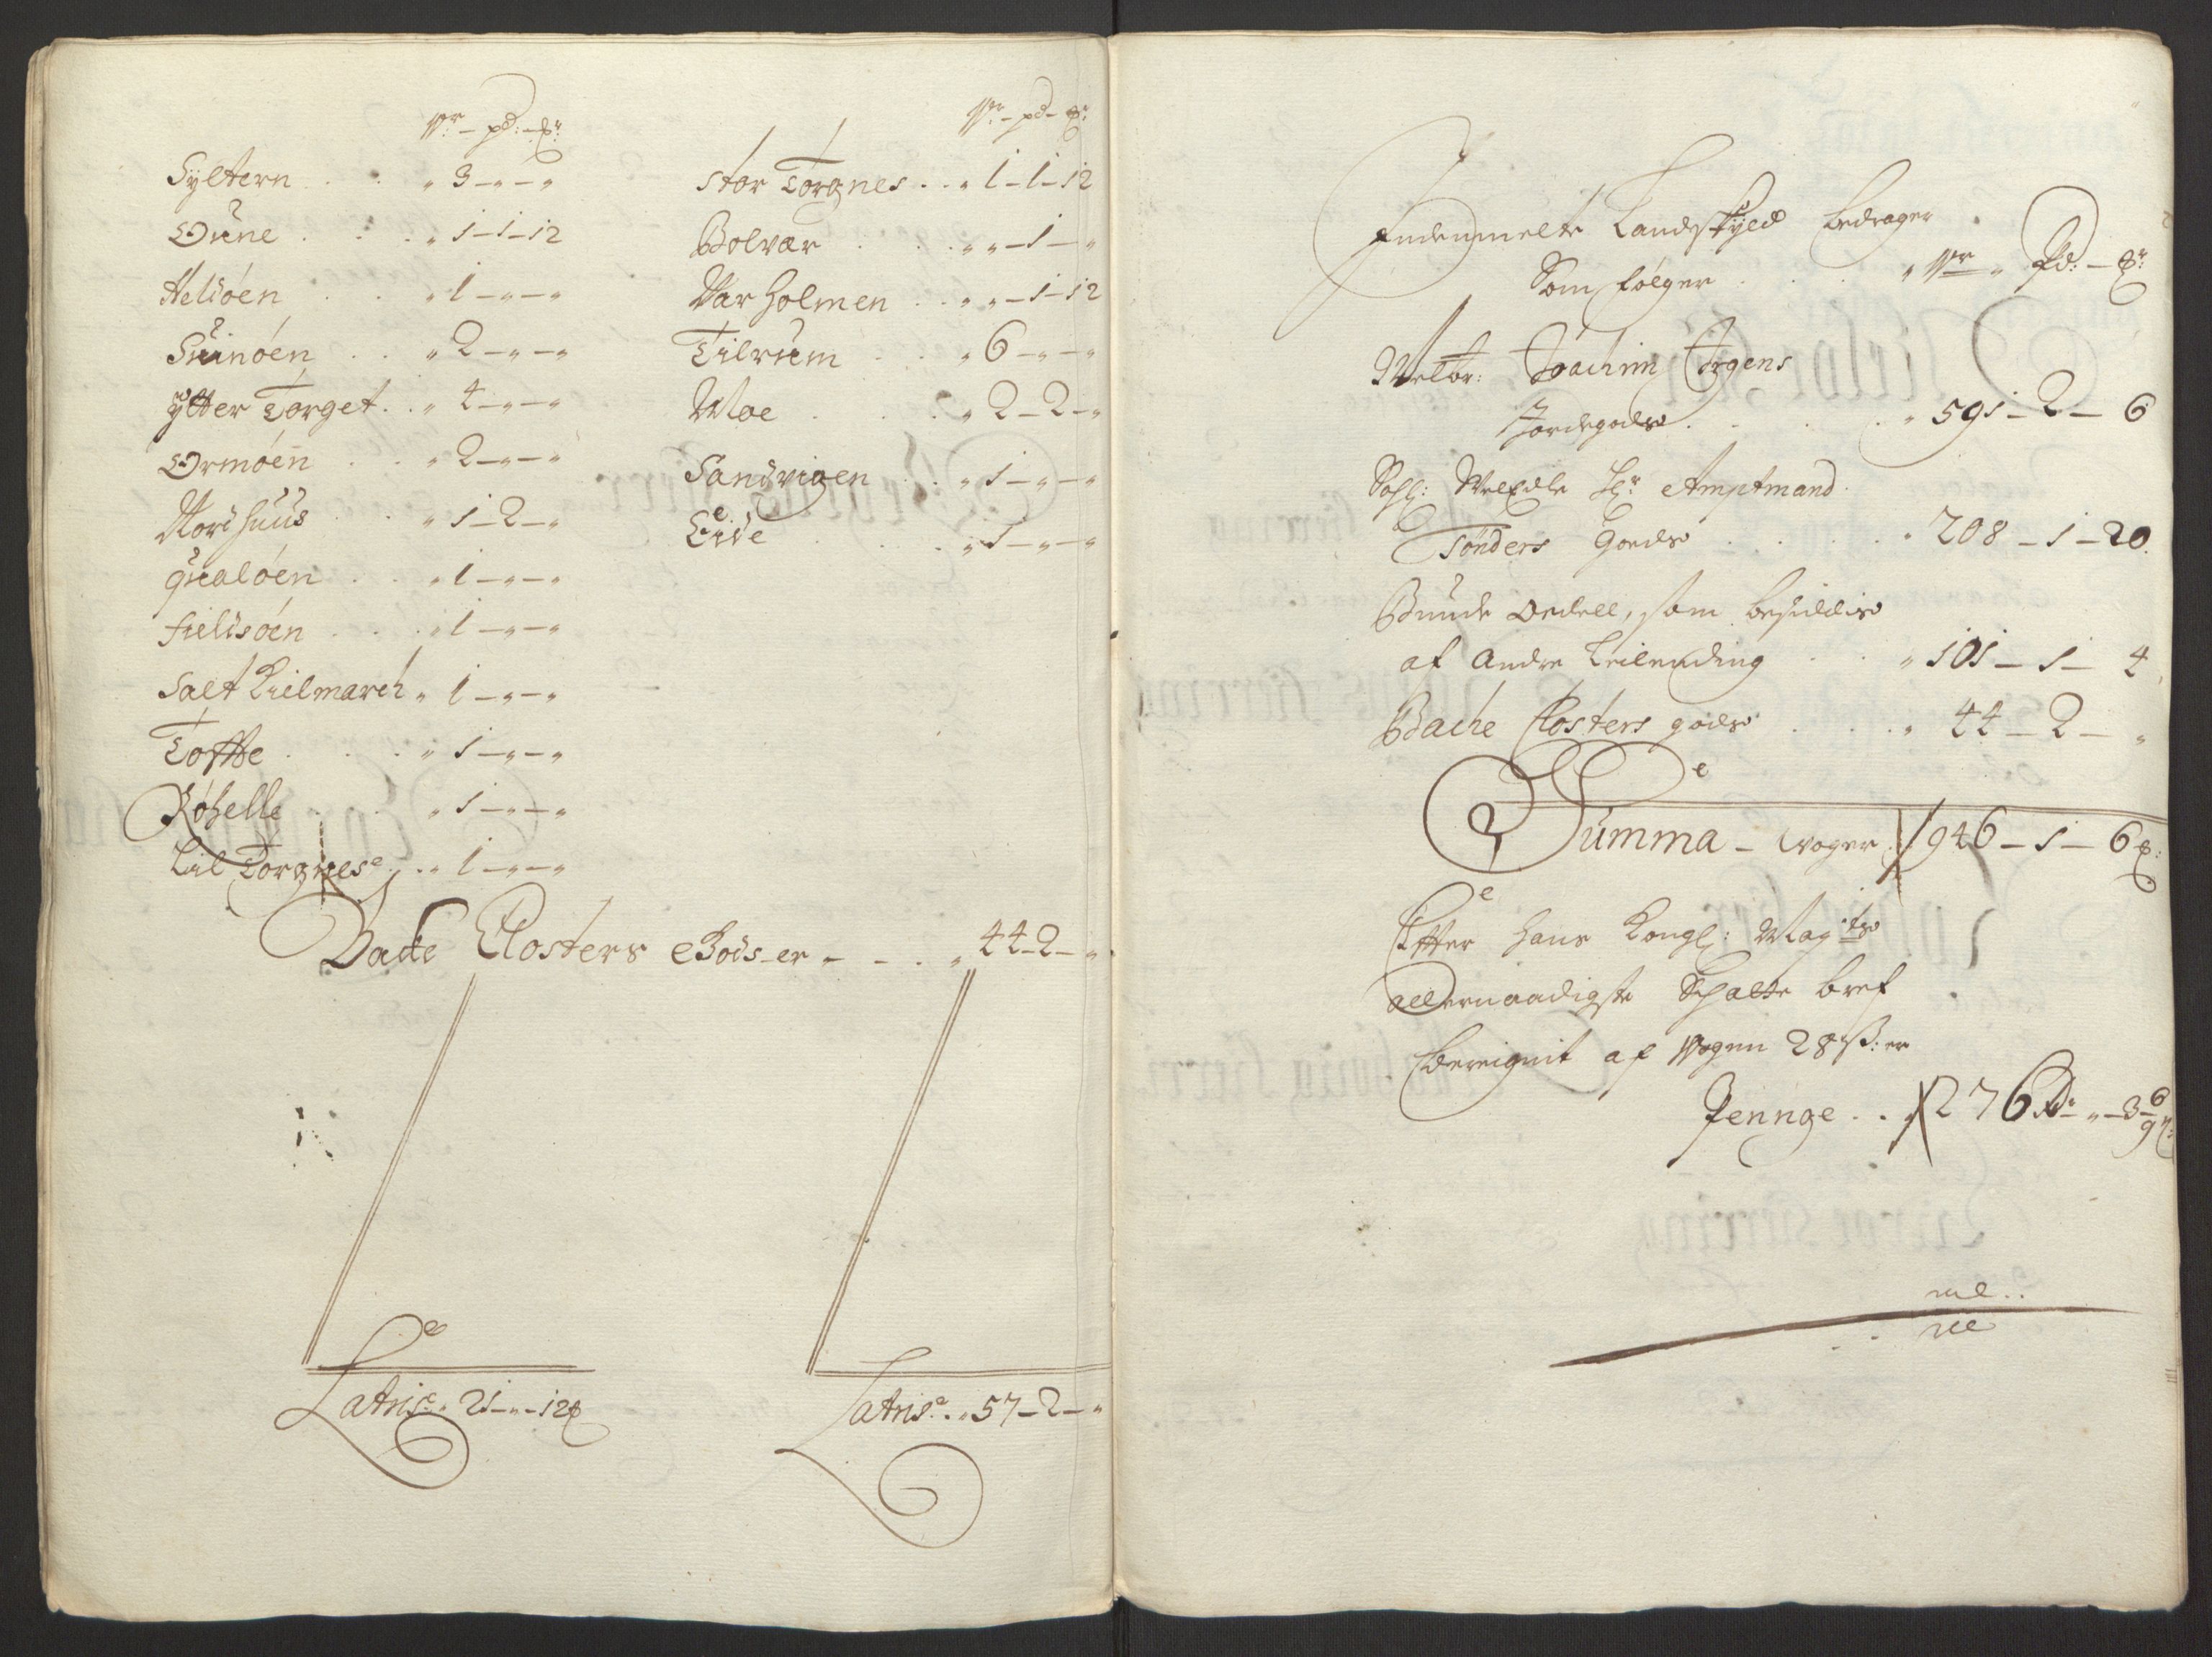 Wr – pd: – ℔r
Syltern . . „ 3 – „ – „
Oune . . . „ 1 – 1 – 12
Heldöen . . „ 1 – „ – „
Suinöen . . „ 2 – „ – „
ÿtter Torget . . „ 4 – „ – „
Ormöen . . „ 2 – „ – „
Nordhuus . . „ 1 – 2 – „
Qualöen . . „ 1 – „ – „
Fieldsöen . . . „ 1 – „ – „
Salt Kielmarch „ 1 – „ – „
Tofte . . . „ 1 – „ – „
Röhelle . . „ 1 – „ – „
Lil Torgnes . . „ 1 – „ – „
Wr – pd – ℔r
Stor Torgnes . . „ 1 – 1 – 12
Bolvær . . . „ „ – 1 – „
Varholmen . . „ „ – 1 – 12
Tilrum . . „ 6 – „ – „
Moe . . . „ 2 – 2 – „
Sandvigen . . „ 1 – „ – „
Eide . . . „ 1 – „ – „
Bache Closters Gods er – – . „ 44 – 2 – „
Latris . „ 21 – „ – 12 ℔
Latris . „ 57 – 2 – „
Indenmelte Landskyld bedrager
Som følger . . . „ Wr „ Pd: – ℔r
Welbr: Joachim Jrgens
Jordegods . . . . „ 591 – 2 – 6
Sahl: WelEdle Hr Amptmand
Tønders Gods . . . . „ 208 – 1 – 20
Bunde Odell, som besiddis
af Andre Leilending . . „ 101 – 1 – 4
Bache Closters gods . . . „ 44 – 2 – „
Summa – woger . 946 – 1 – 6 ℔:
Efter Hans Kongl: Mayts
allernaadigste Schatte bref
bereignit af Wogen 28 ß: er
Pennge . . 276 Rdr „ – 3 –